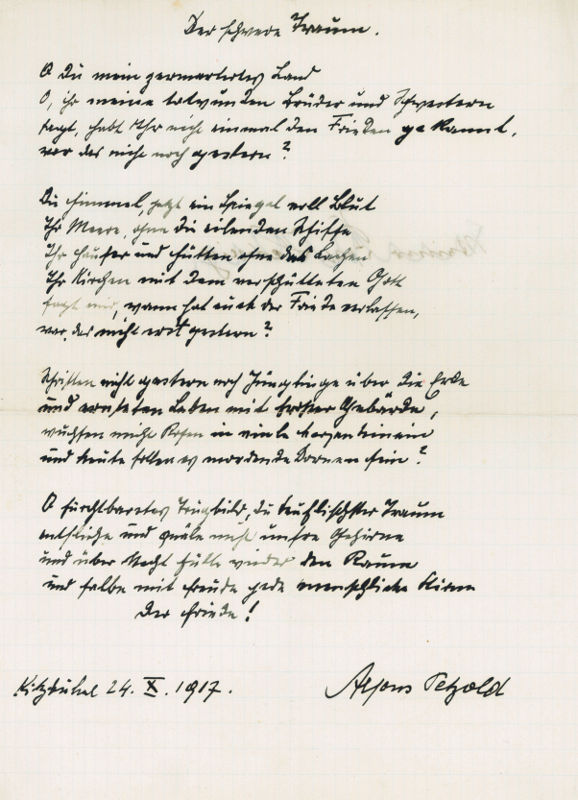 Der schwere Traum.
O Du mein gemartertes Land
O, ihr meine todwunden Brüder und Schwestern
sagt, habt Ihr nicht einmal den Frieden gekannt,
war das nicht noch gestern?
Du Himmel, jetzt ein Spiegel voll Blut
Ihr Meere, ohne die eilenden Schiffe
Ihr Häuser und Hütten ohne das Lachen
Ihr Kirchen mit dem verschütteten Gott
sagt mir, wann hat euch der Friede verlassen,
war das nicht erst gestern?
Schritten nicht gestern noch Jünglinge über die Erde
und ernteten Leben mit Gebärde,
wuchsen nicht Rosen in viele Herzen hinein
und heute sollen es mordende Dornen sein?
O furchtbares Trugbild, du teuflischster Traum
entfliehe und quäle nicht unsre Gehirne
und über Nacht fülle wieder den Raum
und salbe mit Freude jede menschliche Stirne
Der Friede!
Kitzbühel 24. X. 1917.
Alfons Petzold